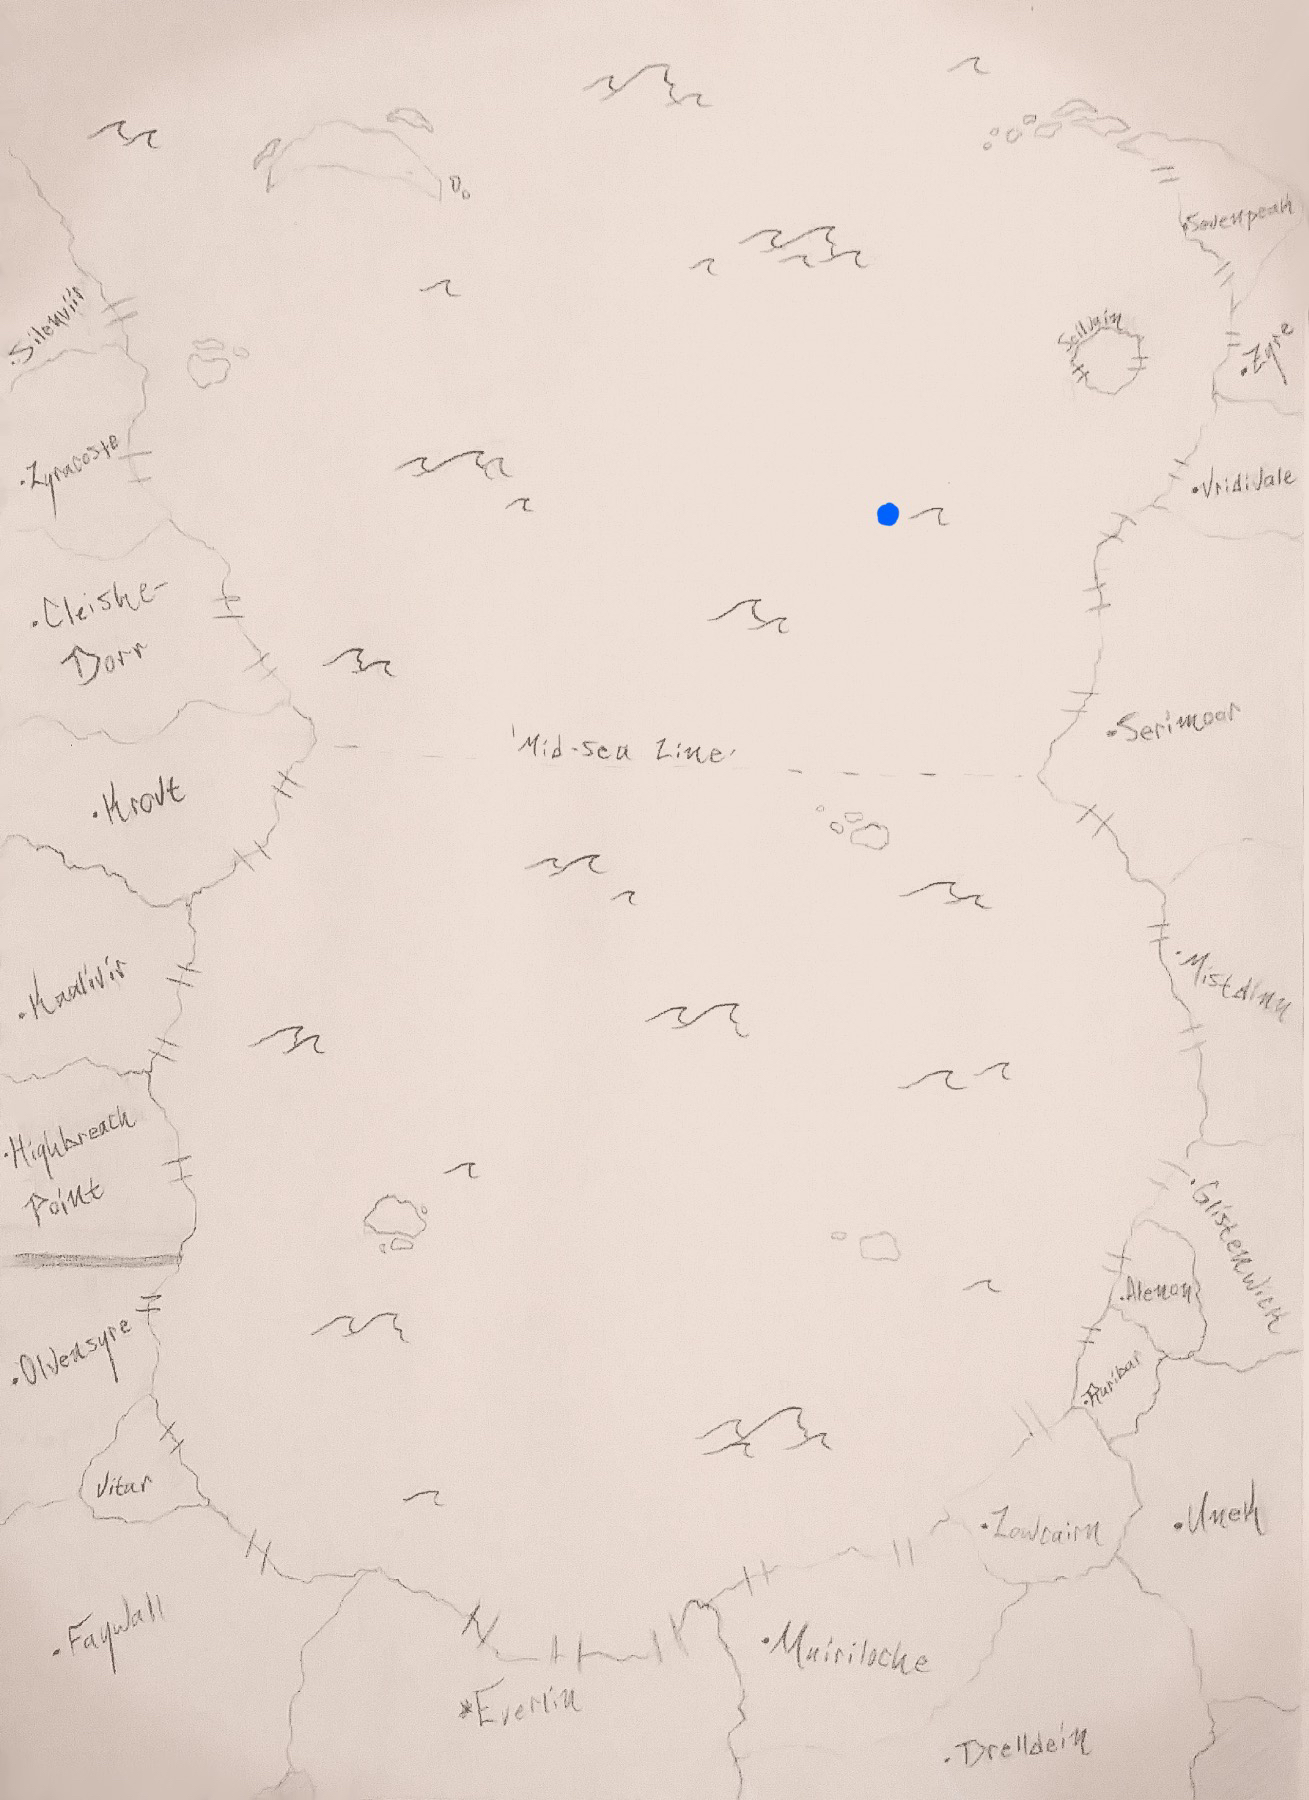 Sevenpeak
Silenviir
Seilmin
Zyre
Zyracoste
Vridivale
Cleishe-
Dorr
Serimoar
'Mid-Sea Line'
Krovt
Kaalivir
Mistdinn
Highbreach
Point
Glistenwick
Alenon
Olvensyre
Auribar
Vitar
Lowcairn
Unek
Faywall
Muiriloche
*Everlin
Drelldein